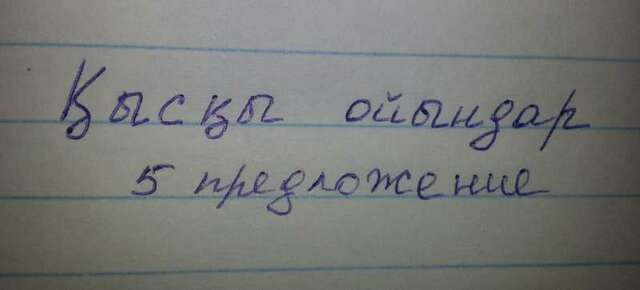 Қысқы ойындар
5 предложение